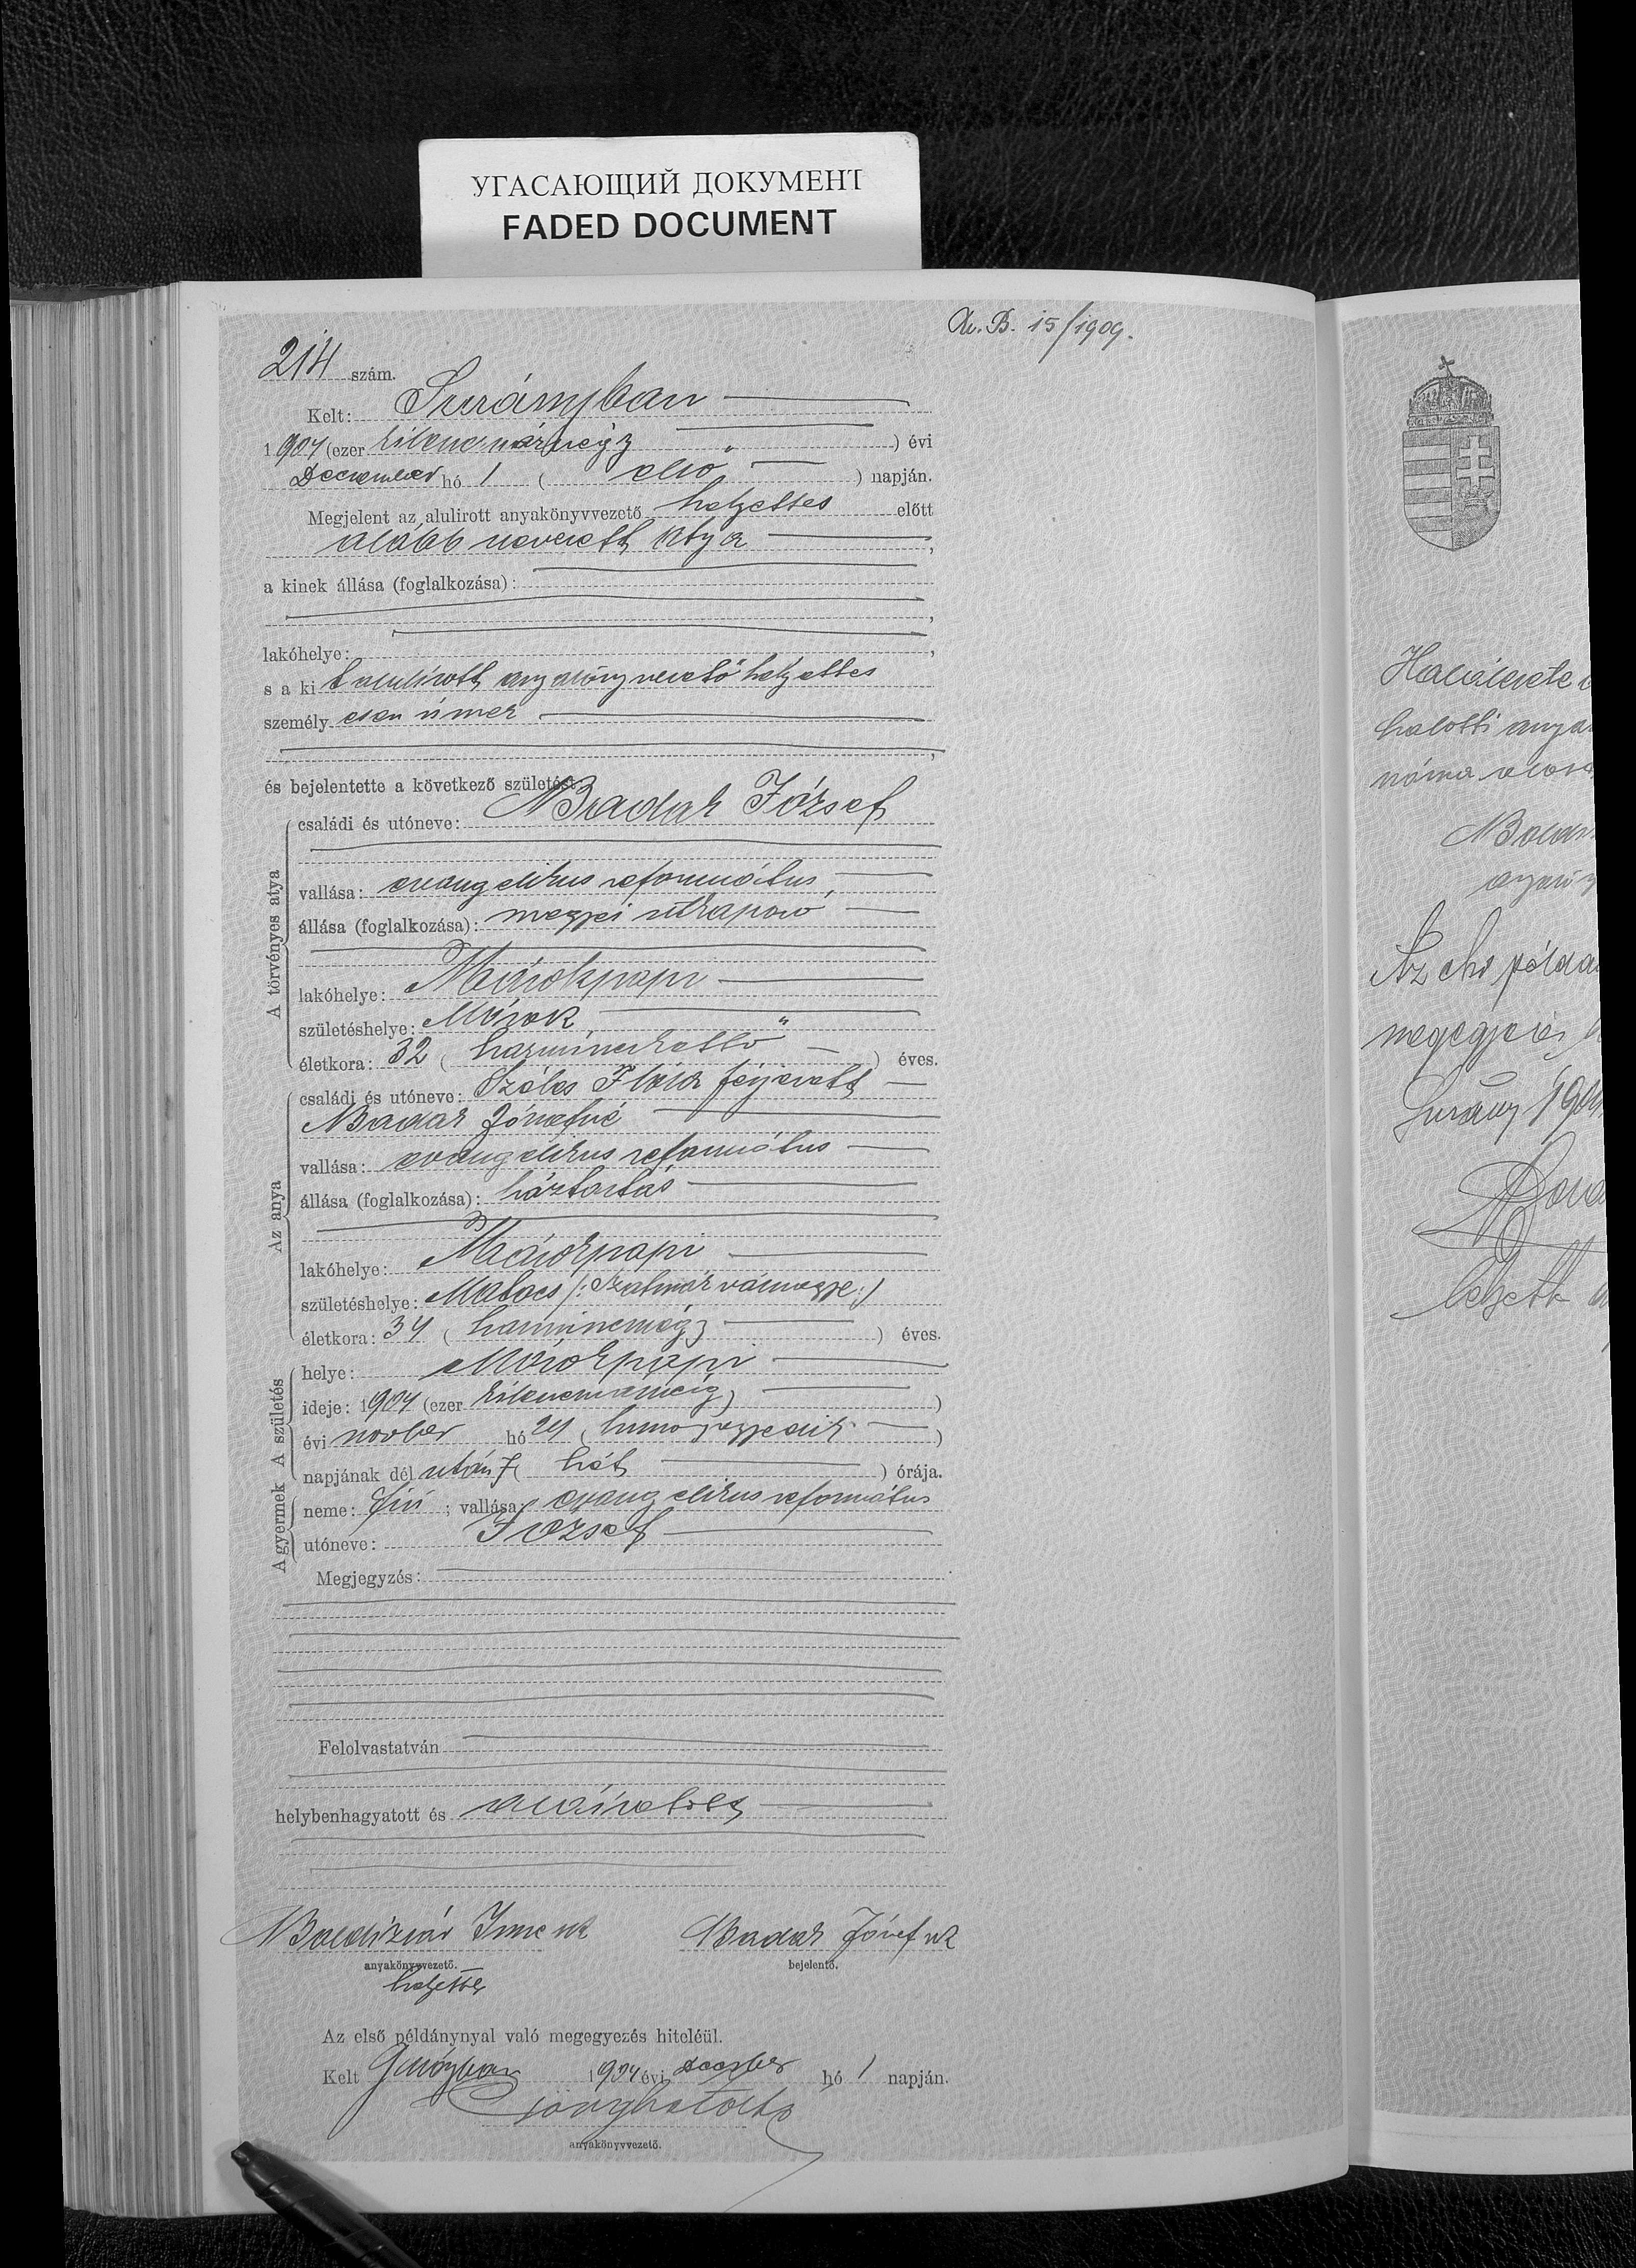 УГАСАЮЩИЙ ДОКУМЕНТ
FADED DOCUMENT
B. 15/1909.
214 szám.
Kelt: Surányban
1904 (ezer kilencszáznégy) évi
December hó 1 (első) napján.
Megjelent az alulirott anyakönyvvezető helyettes előtt
alább nevezett atya,
a kinek állása (foglalkozása):
lakóhelye:
s a ki t alulirott anyakönyvvezető helyettes
személyesen ismer
és bejelentette a következő születést:
A törvényes atya
családi és utóneve: Badar József
vallása: evangelikus református,
állása (foglalkozása): megyei útkaparó
lakóhelye: Márokpapi
születéshelye: Márok
életkora: 32 (harminckettő) éves.
Az anya
családi és utóneve: Széles Flóra férjezett
Badar Józsefné
vallása: evangelikus református
állása (foglalkozása): háztartás
lakóhelye: Márokpapi
születéshelye: Matocs /: Szatmár vármegye :/
életkora: 34 (harmincnégy) éves.
A születés
helye: Márokpapi
ideje: 1904 (ezer kilencszáznégy)
évi november hó 24 (huszonnegyedik)
napjának dél után 7 (hét) órája.
A gyermek
neme: fiú; vallása: evangelikus református
utóneve: József
Megjegyzés:
Felolvastatván
helybenhagyatott és aláíratott
Baldizsár Imre sk
anyakönyvvezető.
helyettes
Badar József sk
bejelentő.
Az első példánynyal való megegyezés hiteléül.
Kelt 1904 évi december hó 1 napján.
anyakönyvvezető.
halotti anya
Az első példa
megegyezés
Surány 190